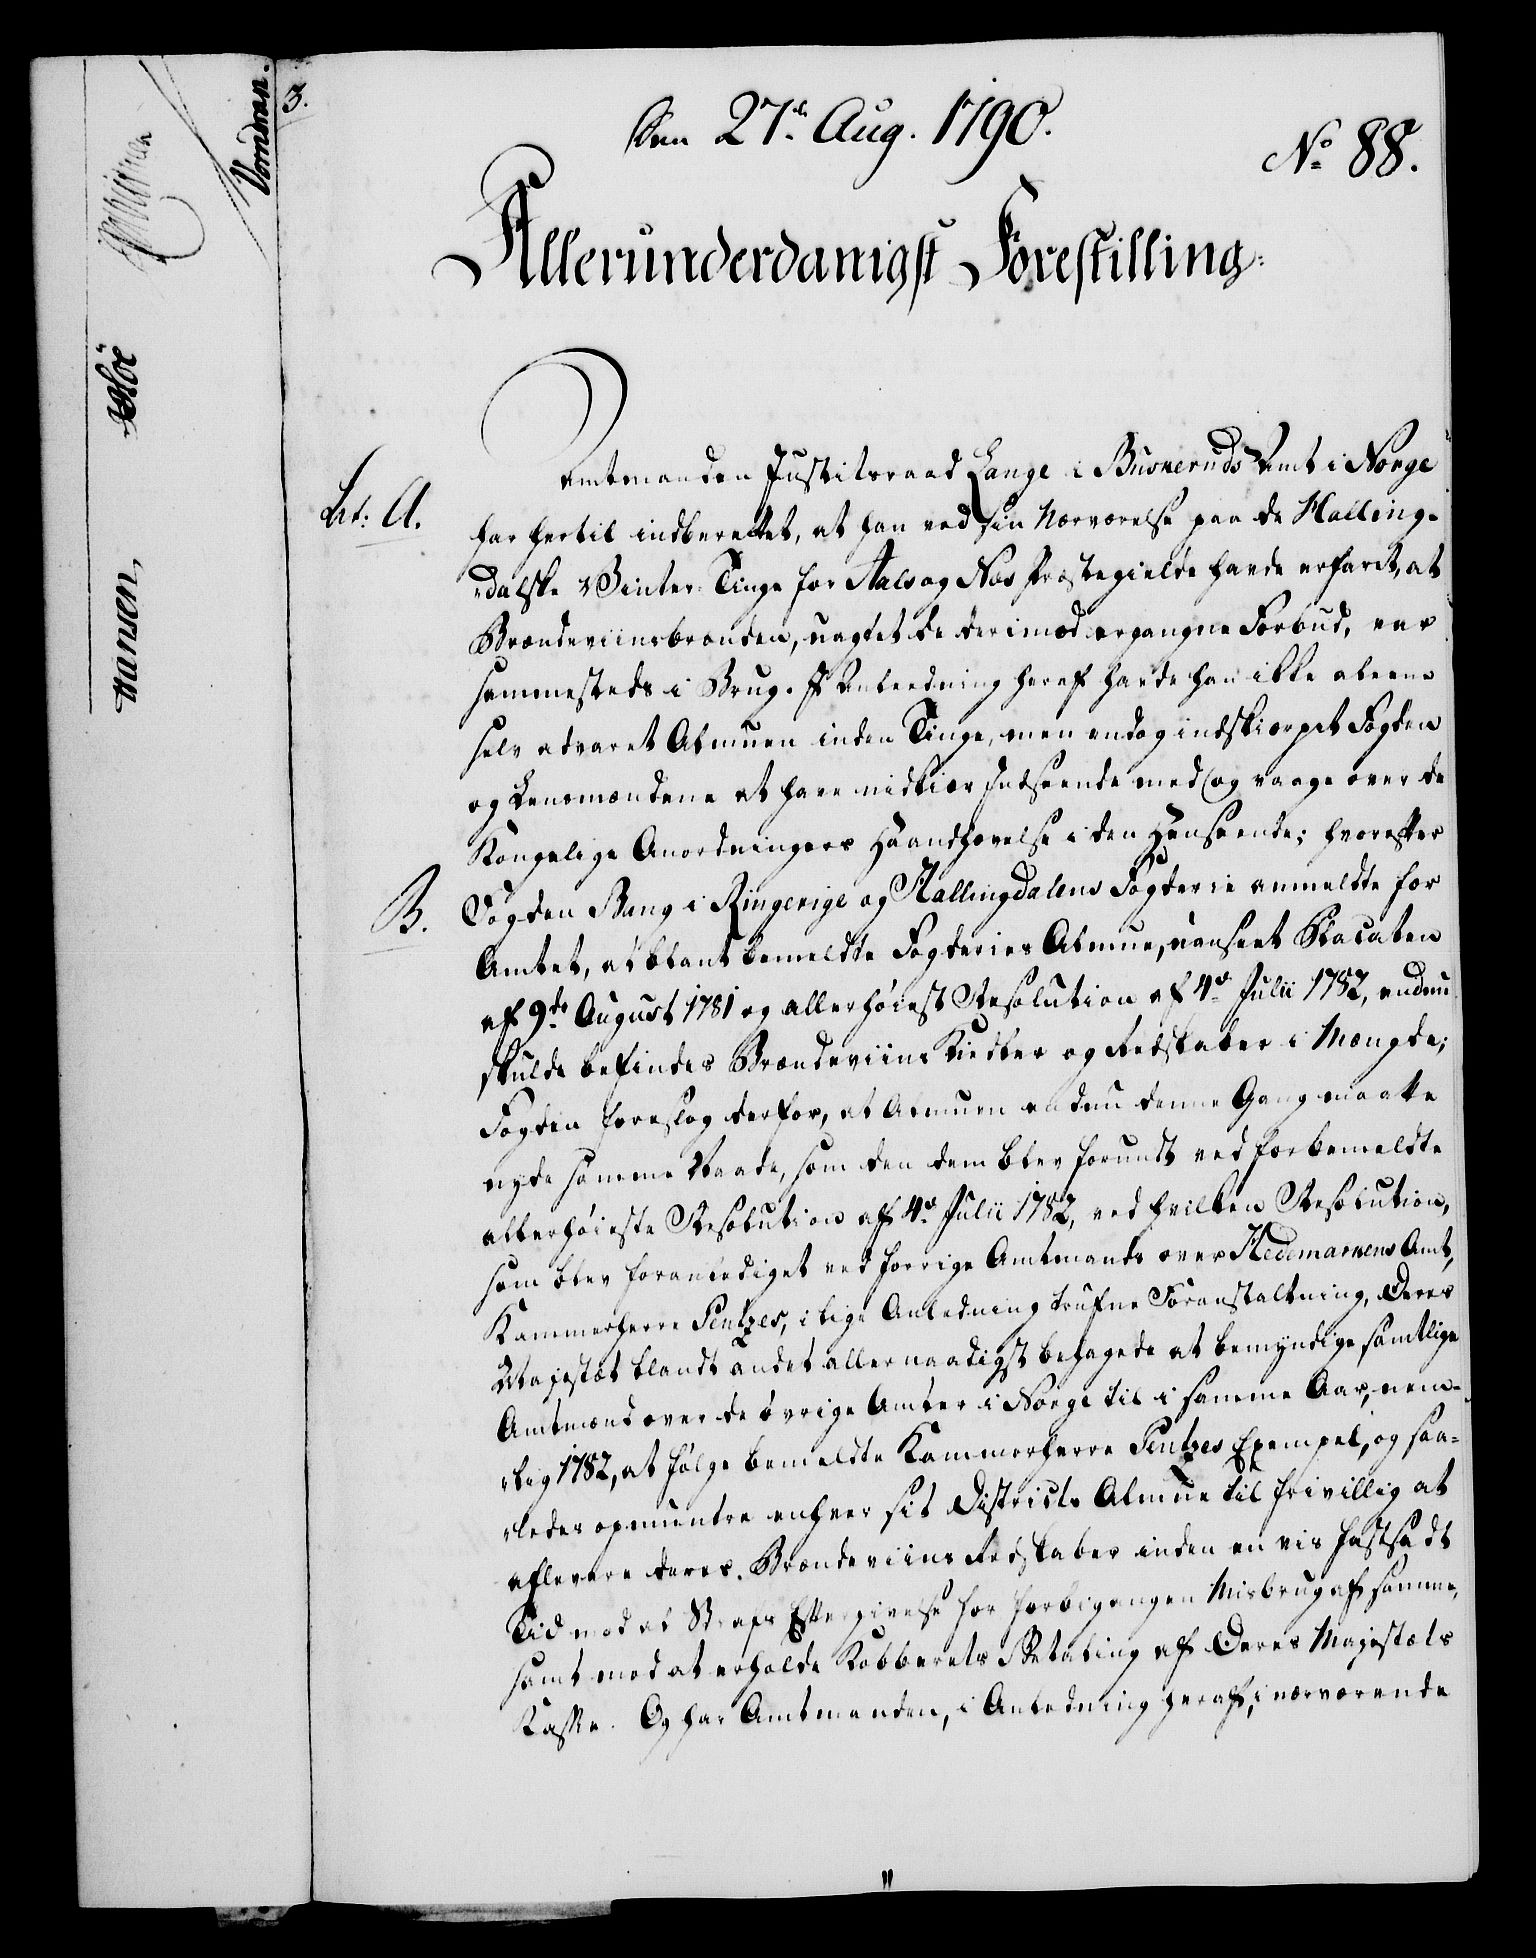 3.
Den 27de Aug. 1790.
No 88.
Allerunderdanigst Forestilling.
Lit: A.
Amtmanden Justitsraad Lange i Buskeruds Amt i Norge
har hertil indberettet, at han ved sin Nærværelse paa de Halling-
dalske Vinter-Tinge for Aals og Næs Præstegielde havde erfaret, at
Brændeviinsbrænden, uagtet de derimod ergangne Forbud, var
sammesteds i Brug. I Anledning heraf havde han ikke aleene
selv advaret Almuen inden Tinge, men endog indskiærpet Fogden
og Lensmændene at have nidkiær Indseende med og vaage over de
Kongelige Anordningers Haandhævelse i den Henseende; hvorefter
B.
Fogden Bang i Ringerige og Hallingdalens Fogderie anmeldte for
Amtet, at blant bemeldte Fogderies Almue, uanseet Placaten
af 9de August 1781 og allerhøiest Resolution af 4de Julii 1782, endnu
skulde befindes Brændeviins Kiedler og Redskaber i Mængde;
Fogden foreslog derfor, at Almuen endnu denne Gang maatte
nyde samme Naade, som den dem blev forundt ved forbemeldte
allerhøieste Resolution af 4de Julii 1782, ved hvilken Resolution,
som blev foranlediget ved forrige Amtmands over Hedemarkens Amt,
Kammerherre Sentzes, i lige Anledning trufne Foranstaltning, Deres
Majestæt blandt andet allernaadigst behagede at bemyndige samtlige
Amtmænd over de øvrige Amter i Norge til i samme Aar, nem-
lig 1782, at følge bemeldte Kammerherre Sentzes Exempel, og saa-
ledes opmuntre enhver sit Districts Almue til frivillig at
aflevere deres Brændeviins Redskaber inden en vis fastsadt
Tid mod at Strafs Eftergivelse for forbigangen Misbrug af samme,
samt mod at erholde Kobberets Betaling af Deres Majestæts
Kasse. Og har Amtmanden, i Anledning heraf, i nærværende
"
Hansen,